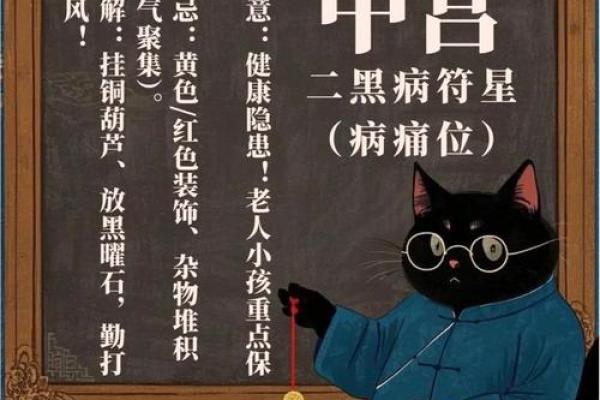 中宫
二黑病符星
（病痛位）
意：健康隐患！老人小孩重点保
忌：黄色/红色装饰、杂物堆积
气聚集）。
解：挂铜葫芦、放黑曜石，勤打
风！